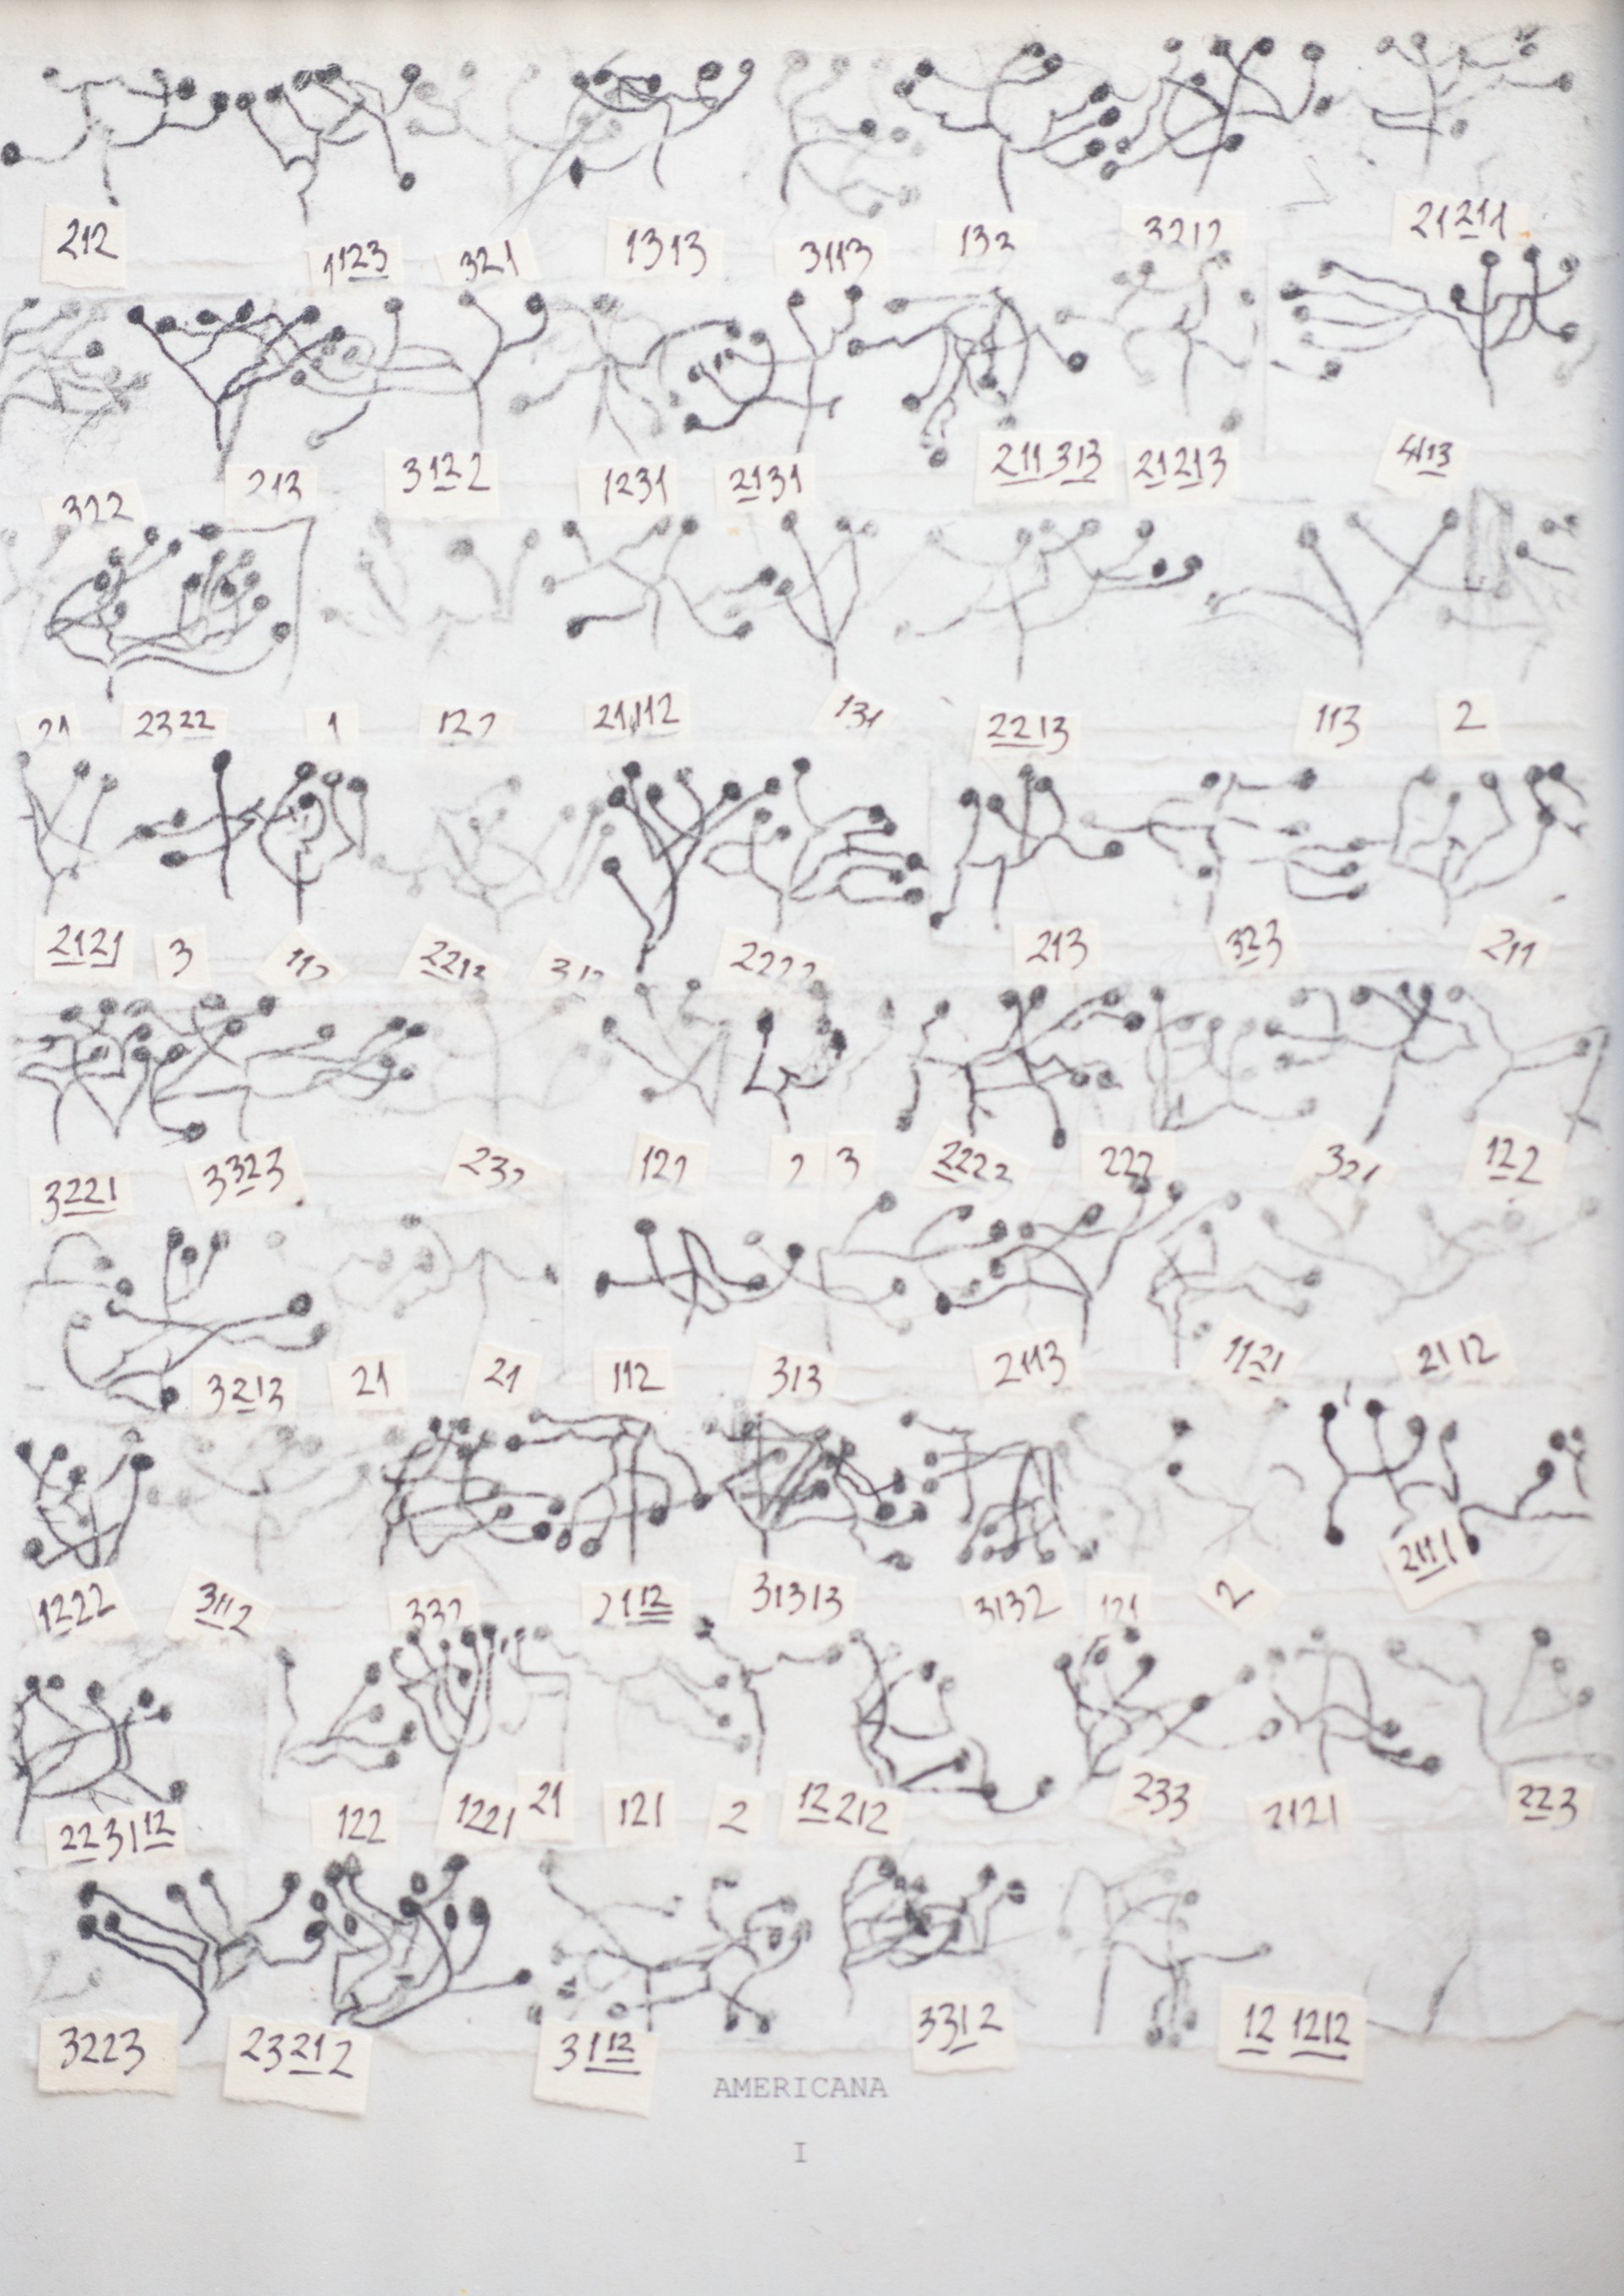 212 1123 321 1313 3113 132 3212 21211
322 213 3122 1231 2131 211313 21213 4113
21 2322 1 122 21112 131 2213 113 2
2121 3 112 2212 312 2222 213 323 211
3221 3323 232 122 2 3 2222 222 321 122
3213 21 21 112 313 2113 1121 2112
1222 3112 332 2112 31313 3132 121 2 2111
223112 122 1221 21 121 2 12212 233 2121 223
3223 23212 3112 3312 12 1212
AMERICANA
I